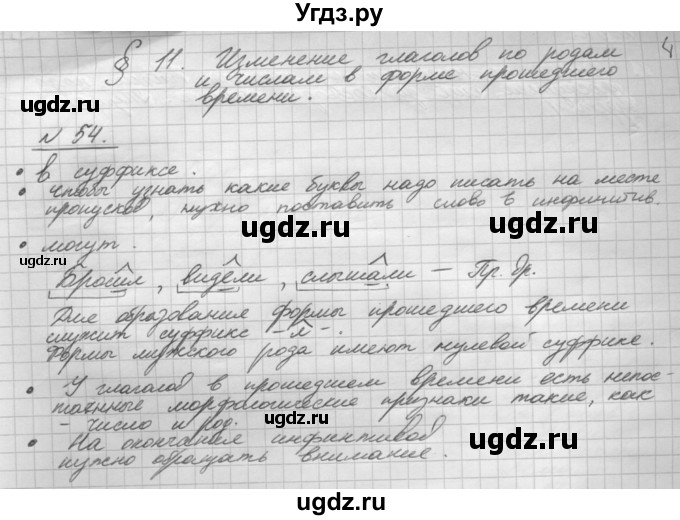 Угдз.ру
§ 11. Изменение глаголов по родам 4
и числам в форме прошедшего
времени.
ugdz.ru ugdz.ru ugdz.ru
№ 54.
• в суффиксе.
• чтобы узнать какие буквы надо писать на месте
пропусков, нужно поставить слово в инфинитив.
ugdz.ru ugdz.ru
• могут.
ugdz.ru
Бросил, видели, слышали — Пр. вр.
Для образования формы прошедшего времени
служит суффикс -л-.
ugdz.ru ugdz.ru
Формы мужского рода имеют нулевой суффикс.
• У глаголов в прошедшем времени есть непос-
тоянные морфологические признаки такие, как
ugdz.ru ugdz.ru ugdz.ru
- число и род.
• На окончания инфинтивов
нужно обращать внимание.
ugdz.ru ugdz.ru